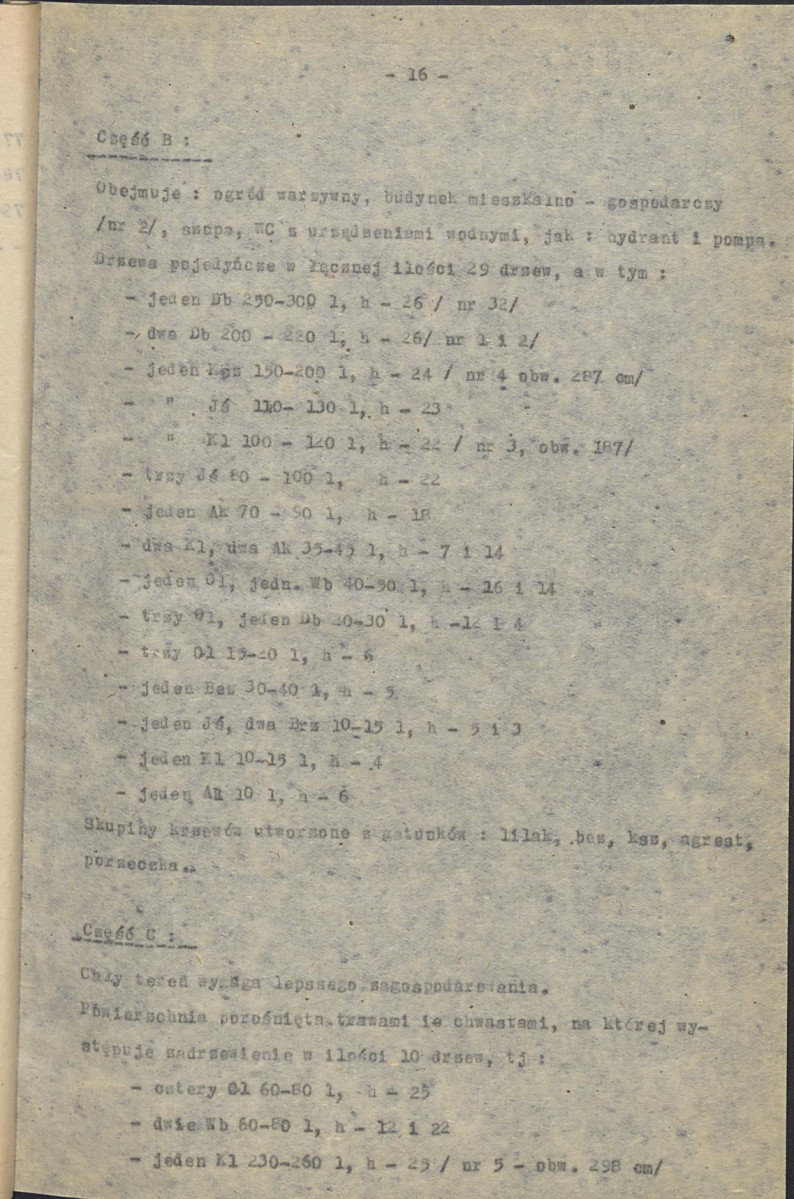 - 16 -
Część B :
Obejmuje : ogród warzywny, budynek mieszkalno - gospodarczy
/nr 2/, szopa, WC z urządzeniami wodnymi, jak : hydrant i pompa.
Drzewa pojedyńcze w łącznej ilości 29 drzew, a w tym :
- jeden Db 250-300 l, h - 26 / nr 32/
- dwa Db 200 - 220 l, h - 26/ nr 1 i 2/
- jeden Ksz 150-200 l, h - 24 / nr 4 obw. 287 cm/
- " Jś 110- 130 l, h - 23
- " Kl 100 - 120 l, h - 22 / nr 3, obw. 187/
- trzy Jś 80 - 100 l, h - 22
- jeden Ak 70 - 90 l, h - 18
- dwa Kl, dwa Ak 35-45 l, h - 7 i 14
- jeden Ol, jedn. Wb 40-50 l, h - 16 i 14
- trzy Ol, jeden Db 20-30 l, h -12 i 4
- trzy Ol 15-20 l, h - 6
- jeden Bez 30-40 l, h - 5
- jeden Jś, dwa Brz 10-15 l, h - 5 i 3
- jeden Kl 10-15 l, h - 4
- jeden Ak 10 l, h - 6
Skupiny krzewów utworzone z gatunków : lilak, bez, ksz, agrest,
porzeczka.
Część C :
Cały teren wymaga lepszego zagospodarowania.
Powierzchnia porośnięta trawami i chwastami, na której wy-
stępuje zadrzewienie w ilości 10 drzew, tj :
- cztery Ol 60-80 l, h - 25
- dwie Wb 60-80 l, h - 12 i 22
- jeden Kl 230-260 l, h - 25 / nr 5 - obw. 298 cm/